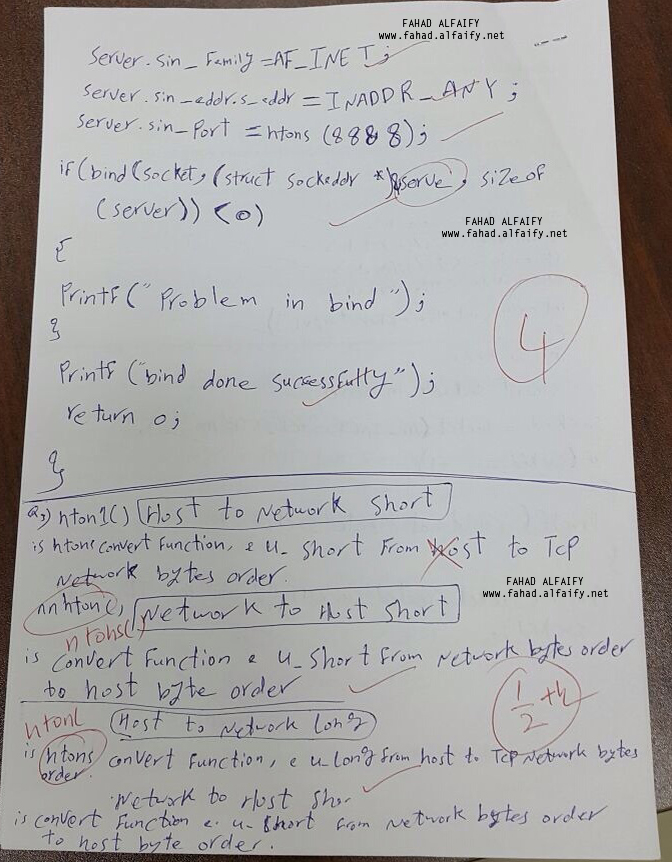 FAHAD ALFAIFY
www.fahad.alfaify.net
server.sin_Family =AF_INET;
server.sin_addr.s_addr = INADDR_ANY;
server.sin_Port = htons (8888);
if (bind (socket, (struct sockeddr *)&serve, sizeof
(server)) <0)
FAHAD ALFAIFY
www.fahad.alfaify.net
{
Printf (" Problem in bind ");
}
4
Printf ("bind done successfully");
return 0;
}
Q3) hton1() Host to Network Short
is htons convert Function, e u_ short From host to TCP
Network bytes order.
FAHAD ALFAIFY
www.fahad.alfaify.net
nnhton(), Network to Host Short
ntohs()
is convert Function e u_short From Network bytes order
to host byte order
1/2 +½
htonl Host to Network Long
is htons convert Function, e u_long from host to TCP Network bytes
order.
Network to Host Shor
is convert Function e. u_ short From Network bytes order
to host byte order.